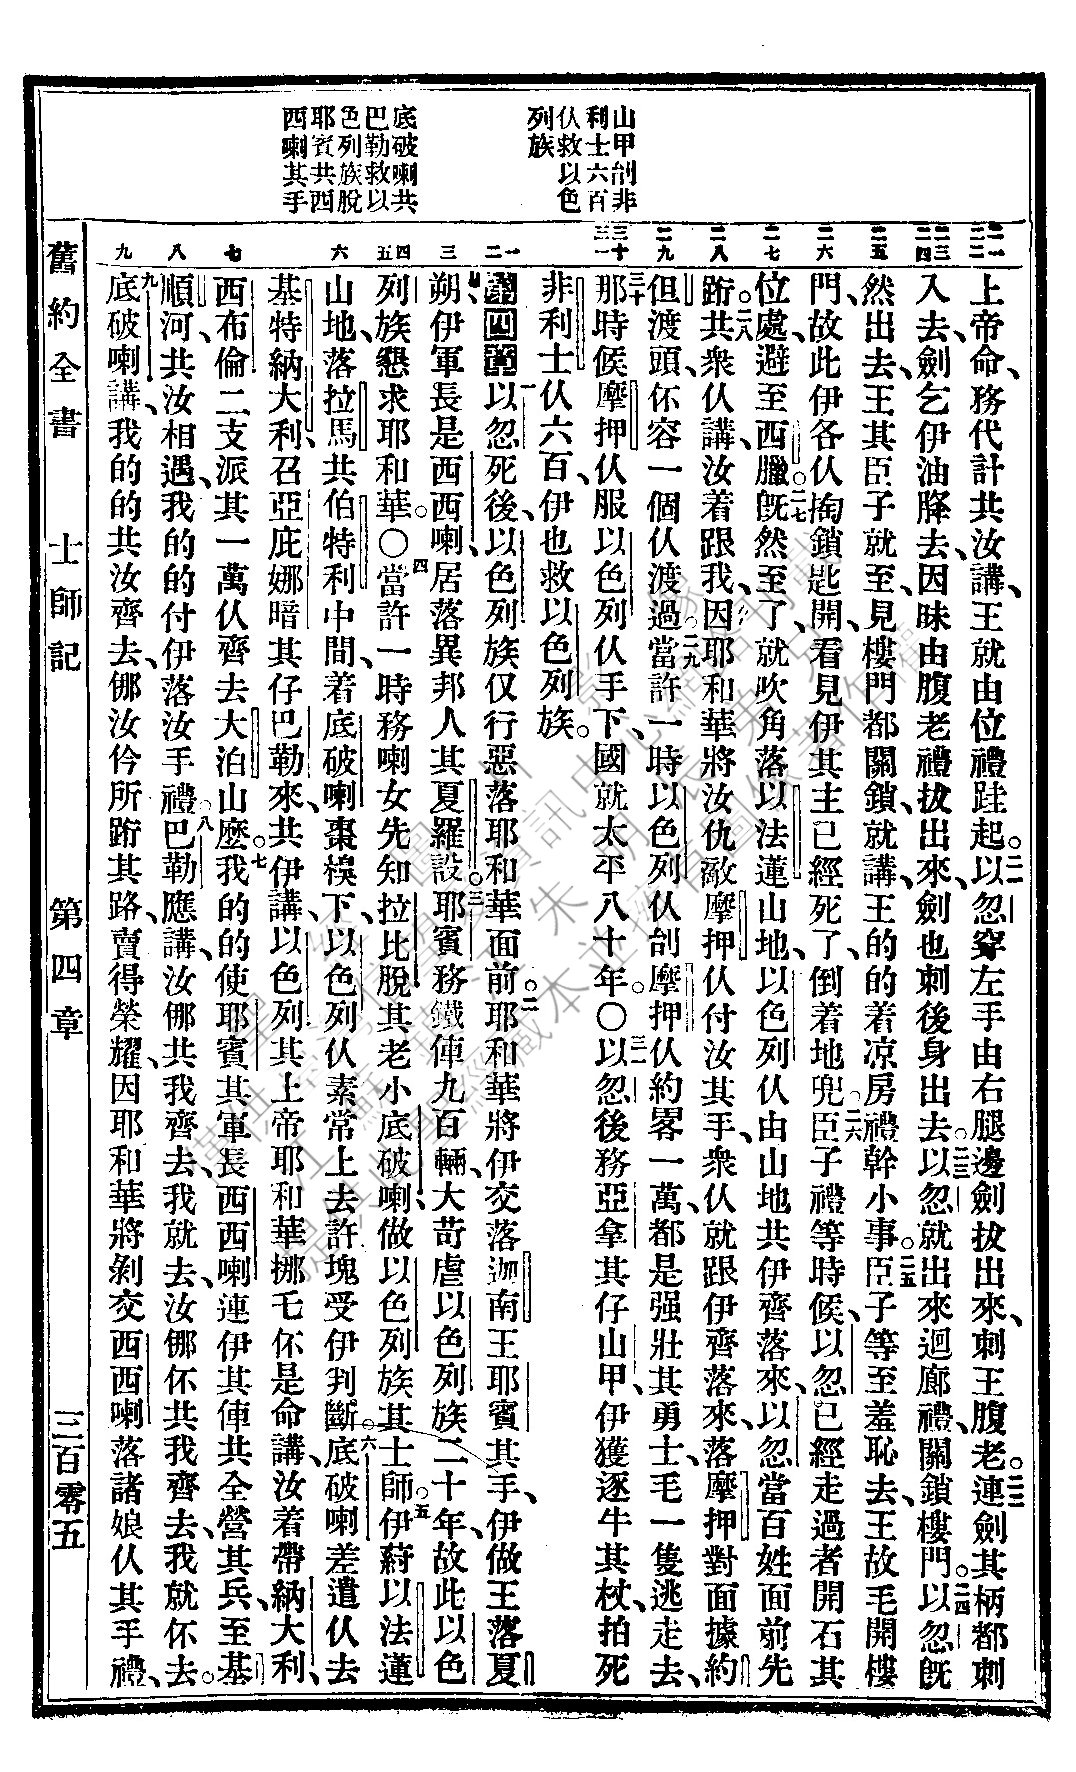 山甲刣非
利士六百
仫救以色
列族
底破喇共
巴勒救以
色列族脫
耶賓共西
西喇其手
二一 二二
二三 二四
二五
二六
二七
二八
二九
三十 三一
一 二
三
四 五
六
七
八
九
上帝命、務代計共汝講、王就由位禮跬起。二一以忽穿左手由右腿邊劍拔出來、刺王腹老。二二連劍其柄都刺
入去、劍乞伊油降去、因昧由腹老禮拔出來、劍也刺後身出去。二三以忽就出來迴廊禮、關鎖樓門。二四以忽旣
然出去、王其臣子就至、見樓門都關鎖、就講、王的的着凉房禮幹小事。二五臣子等至羞恥去、王故毛開樓
門、故此伊各仫掏鎖匙開、看見伊其主已經死了、倒着地兜。二六臣子禮等時候、以忽已經走過者開石其
位處、避至西臘。二七旣然至了、就吹角落以法蓮山地、以色列仫由山地共伊齊落來、以忽當百姓面前先
跨。二八共衆仫講、汝着跟我、因耶和華將汝仇敵摩押仫付汝其手、衆仫就跟伊齊落來、落摩押對面據約
但渡頭、伓容一個仫渡過。二九當許一時以色列仫刣摩押仫約畧一萬、都是强壯其勇士、毛一隻逃走去、
三十那時候摩押仫服以色列仫手下、國就太平八十年。〇三一以忽後務亞拿其仔山甲、伊獲逐牛其杖、拍死
非利士仫六百、伊也救以色列族。
第四章 一以忽死後、以色列族仅行惡落耶和華面前。二耶和華將伊交落迦南王耶賓其手、伊做王落夏
朔、伊軍長是西西喇、居落異邦人其夏羅設。三耶賓務鐵俥九百輛、大苛虐以色列族二十年、故此以色
列族懇求耶和華。〇四當許一時務喇女先知、拉比脫其老小底破喇做以色列族其士師。五伊蔚以法蓮
山地、落拉馬共伯特利中間、着底破喇棗樹下、以色列仫素常上去許塊受伊判斷。六底破喇差遣仫去
基特納大利、召亞庇娜暗其仔巴勒來、共伊講、以色列其上帝耶和華挪乇伓是命講、汝着帶納大利、
西布倫二支派其一萬仫齊去大泊山麽。七我的的使耶賓其軍長西西喇連伊其俥共全營其兵至基
順河、共汝相遇、我的的付伊落汝手禮。八巴勒應講、汝倻共我齊去、我就去、汝倻伓共我齊去、我就伓去。
九底破喇講、我的的共汝齊去、倻汝伶所跨其路、賣得榮耀、因耶和華將剝交西西喇落諸娘仫其手禮、
舊約全書 士師記 第四章 三百零五